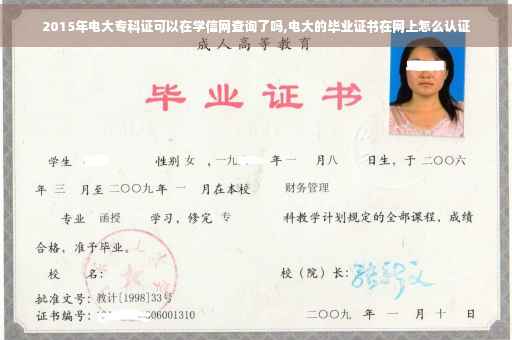 2015年电大专科证可以在学信网查询了吗,电大的毕业证书在网上怎么认证
成人高等教育
毕业证书
学生 性别 女 ,一九 年 一 月八 日生,于 二〇〇六
年 三 月至 二〇〇九年 一 月在本校 财务管理
专业 函授 学习,修完 专 科教学计划规定的全部课程,成绩
合格,准予毕业。
校 名: 校(院)长:
批准文号:教计[1998]33号
证书编号: 06001310 二〇〇九 年 一 月 十 日